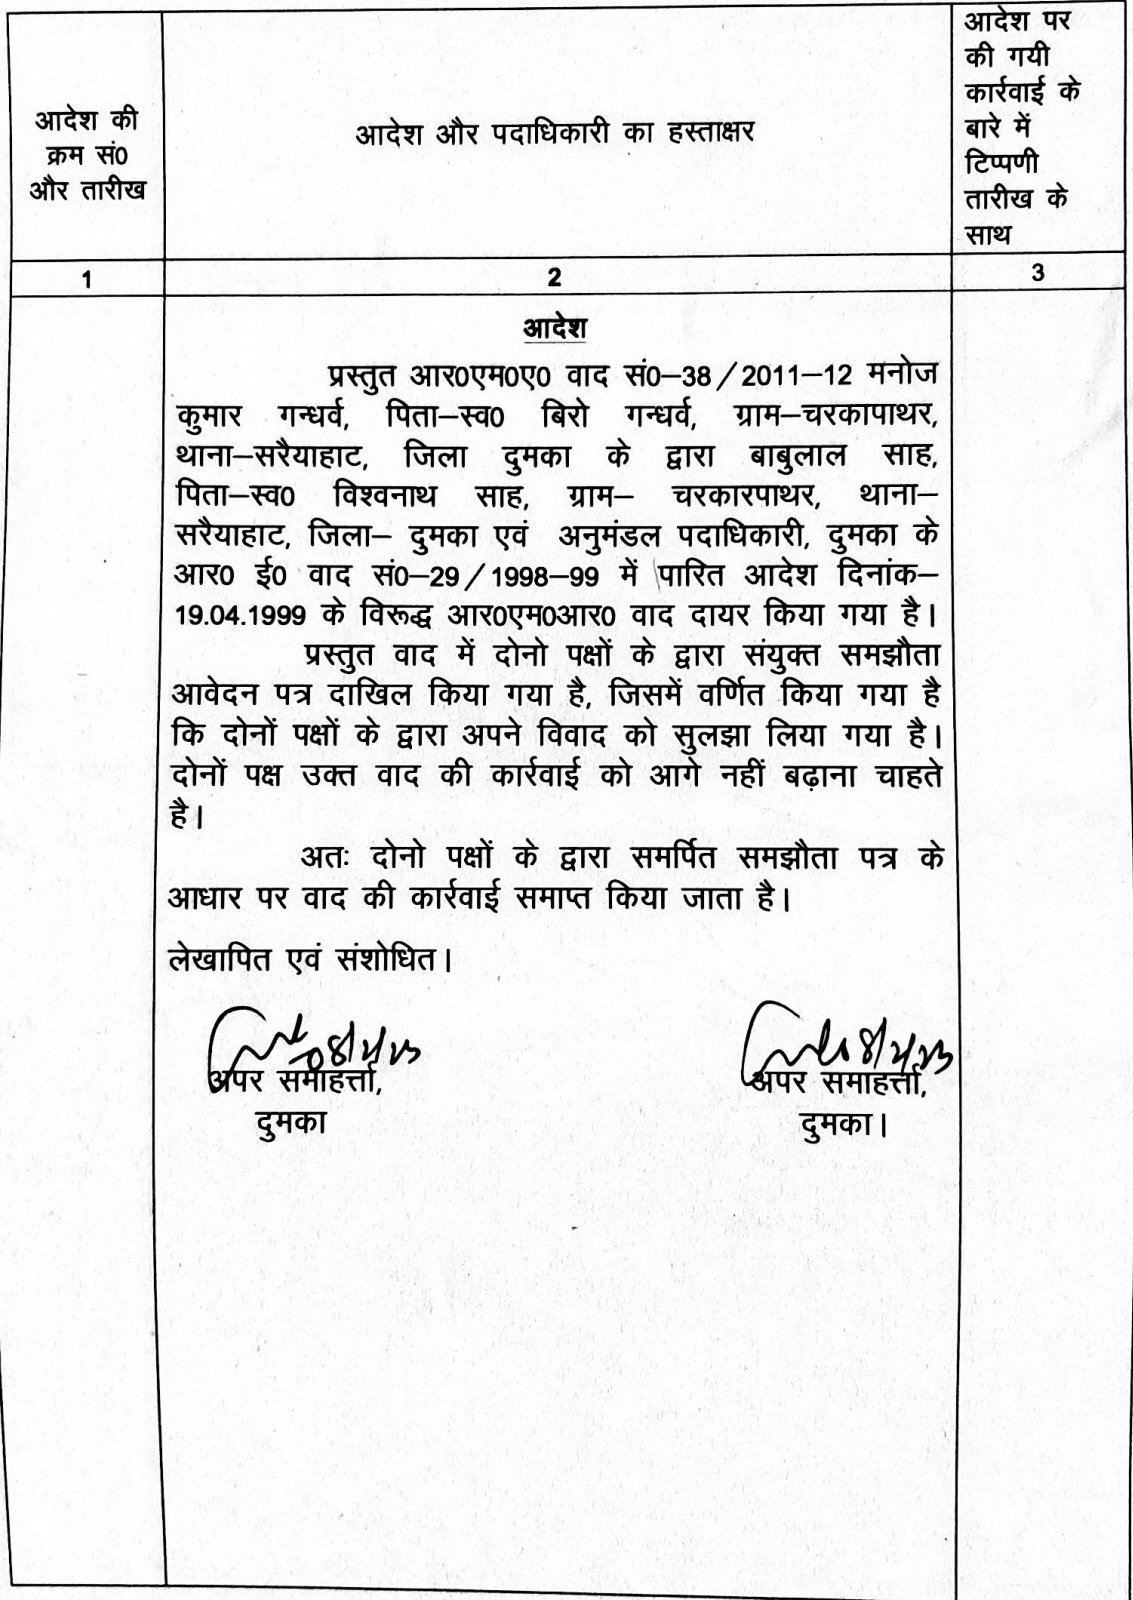 आदेश की
क्रम सं0
और तारीख
आदेश और पदाधिकारी का हस्ताक्षर
आदेश पर
की गयी
कार्रवाई के
बारे में
टिप्पणी
तारीख के
साथ
1
2
3
आदेश
प्रस्तुत आर0एम0ए0 वाद सं0–38/2011–12 मनोज
कुमार गन्धर्व, पिता–स्व0 बिरो गन्धर्व, ग्राम–चरकापाथर,
थाना–सरैयाहाट, जिला दुमका के द्वारा बाबुलाल साह,
पिता–स्व0 विश्वनाथ साह, ग्राम– चरकारपाथर, थाना–
सरैयाहाट, जिला– दुमका एवं अनुमंडल पदाधिकारी, दुमका के
आर0 ई0 वाद सं0–29/1998–99 में पारित आदेश दिनांक–
19.04.1999 के विरूद्ध आर0एम0आर0 वाद दायर किया गया है।
प्रस्तुत वाद में दोनो पक्षों के द्वारा संयुक्त समझौता
आवेदन पत्र दाखिल किया गया है, जिसमें वर्णित किया गया है
कि दोनों पक्षों के द्वारा अपने विवाद को सुलझा लिया गया है।
दोनों पक्ष उक्त वाद की कार्रवाई को आगे नहीं बढ़ाना चाहते
है।
अतः दोनो पक्षों के द्वारा समर्पित समझौता पत्र के
आधार पर वाद की कार्रवाई समाप्त किया जाता है।
लेखापित एवं संशोधित।
अपर समाहर्त्ता,
दुमका
अपर समाहर्त्ता,
दुमका।